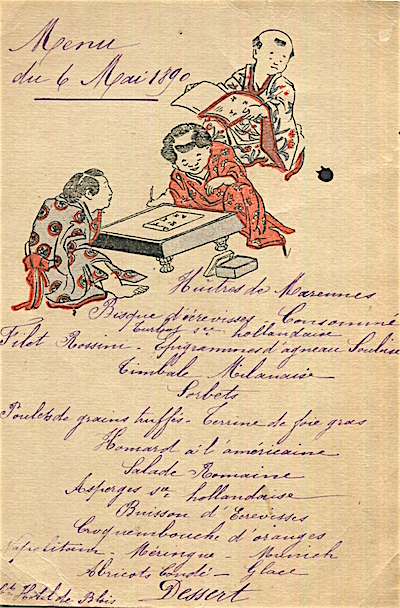 Menu
du 6 Mai 1890
Huîtres de Marennes
Bisque d'écrevisses Consommé
Turbot sce hollandaise
Filet Rossini - Epigrammes d'agneau Soubise
Timbale Milanaise
Sorbets
Poulets de grains truffés - Terrine de foie gras
Homard à l'américaine
Salade Romaine
Asperges sce hollandaise
Buisson d'Ecrevisses
Croquembouche d'oranges
Napolitaine - Meringue - Munich
Abricots Condé - Glace
Dessert
Hôtel de Blois